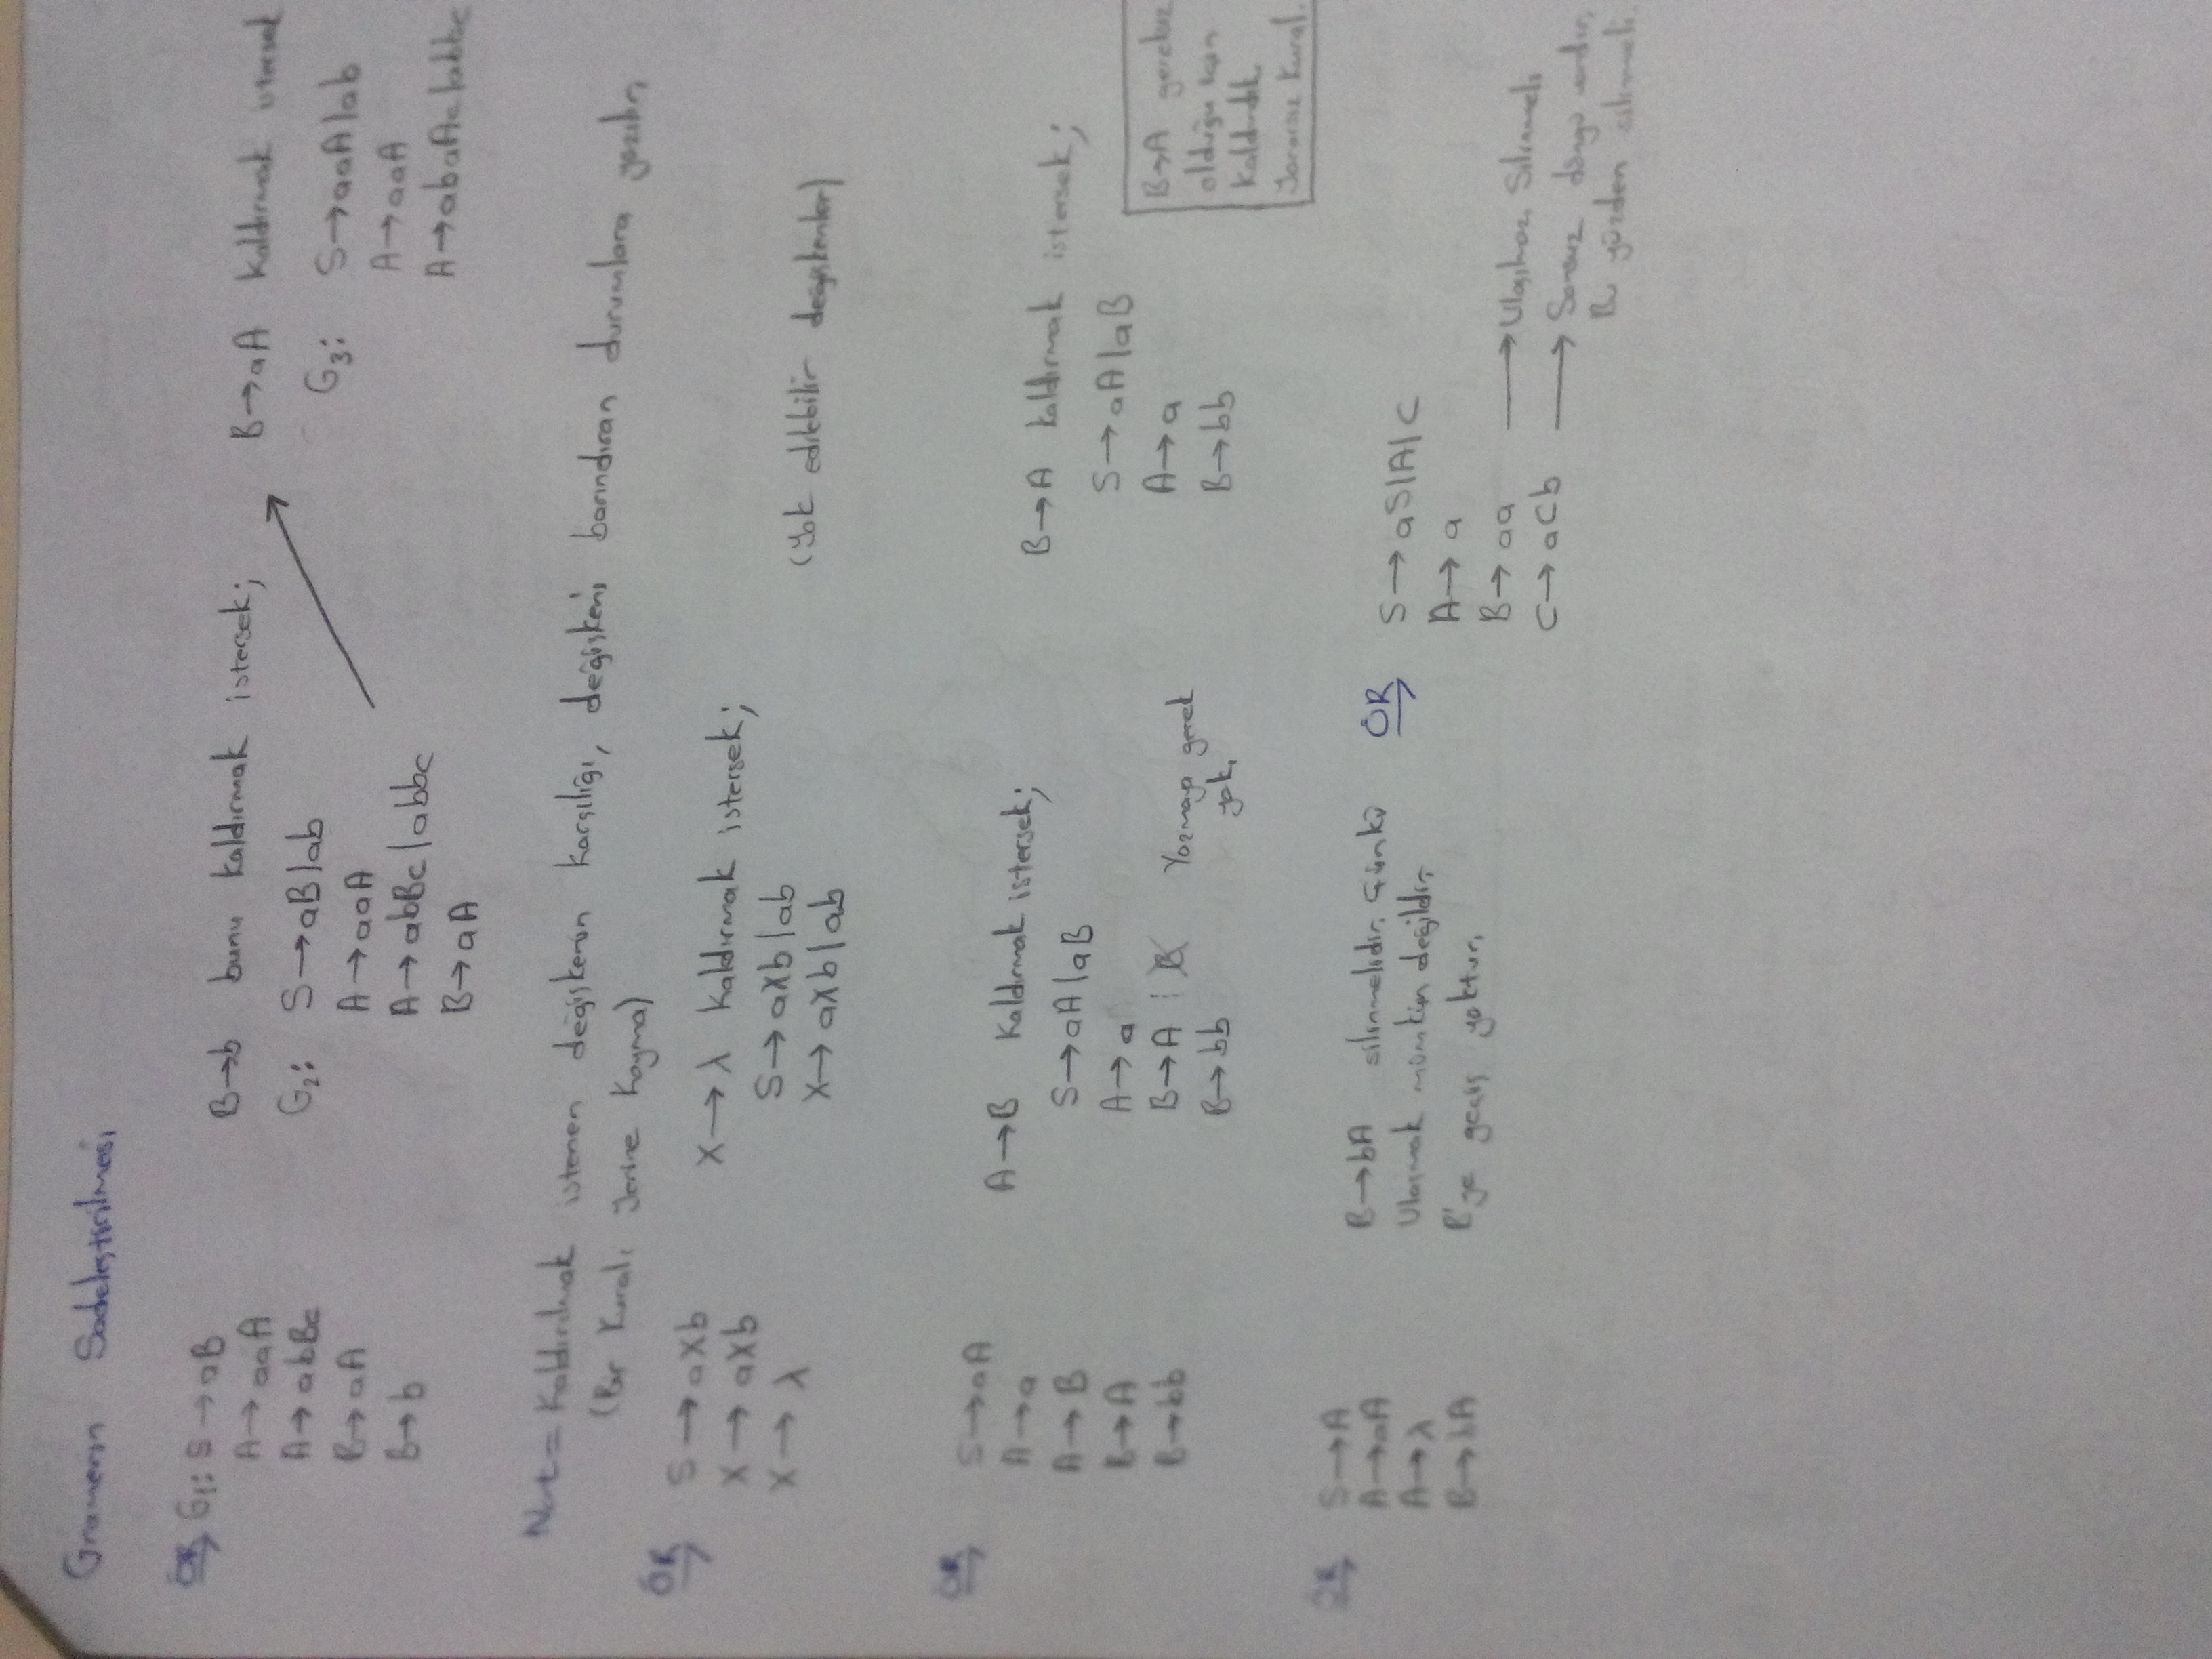 Gramerin Sadeleştirilmesi
ÖR G₁: S → aB
A → aaA
A → abBc
B → aA
B → b
B → b bunu kaldırmak istersek;
G₂: S → aB | ab
A → aaA
A → abBc | abbc
B → aA
B → aA kaldırmak istersek
G₃: S → aaA | ab
A → aaA
A → abaAc | abbc
Not = Kaldırılmak istenen değişkenin karşılığı, değişkeni barındıran durumlara yazılır.
(Bir Kuralı Yerine Koyma)
ÖR S → aXb
X → aXb
X → λ
X → λ kaldırmak istersek;
S → aXb | ab
X → aXb | ab
(Yok edilebilir değişkenler)
ÖR S → aA
A → a
A → B
B → A
B → bb
A → B kaldırmak istersek;
S → aA | aB
A → a
B → A | B Yazmaya gerek
B → bb yok.
B → A kaldırmak istersek;
S → aA | aB
A → a
B → bb
B → A gereksiz
olduğu için
kaldırdık.
Yararsız Kural.
ÖR S → A
A → aA
A → λ
B → bA
B → bA silinmelidir. Çünkü
Ulaşmak mümkün değildir.
B'ye geçiş yoktur.
ÖR S → aS | A | C
A → a
B → aa → Ulaşılmaz. Silinmeli
C → aCb → Sonsuz döngü vardır.
Bu yüzden silinmeli.